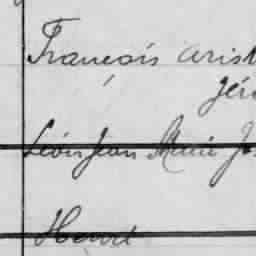 François Arist
Jér
Léon Jean Marie Jo
Henri